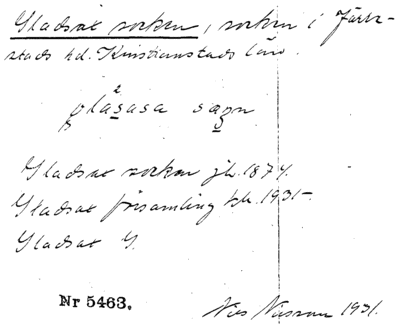 Gladsax socken, socken i Järr-
stads hd. Kristianstads län.
glasasa
Gladsax socken jb. 1874.
Gladsax församling kb. 1931.
Gladsax G.
Nr 5463.
Nils Nilsson 1931.